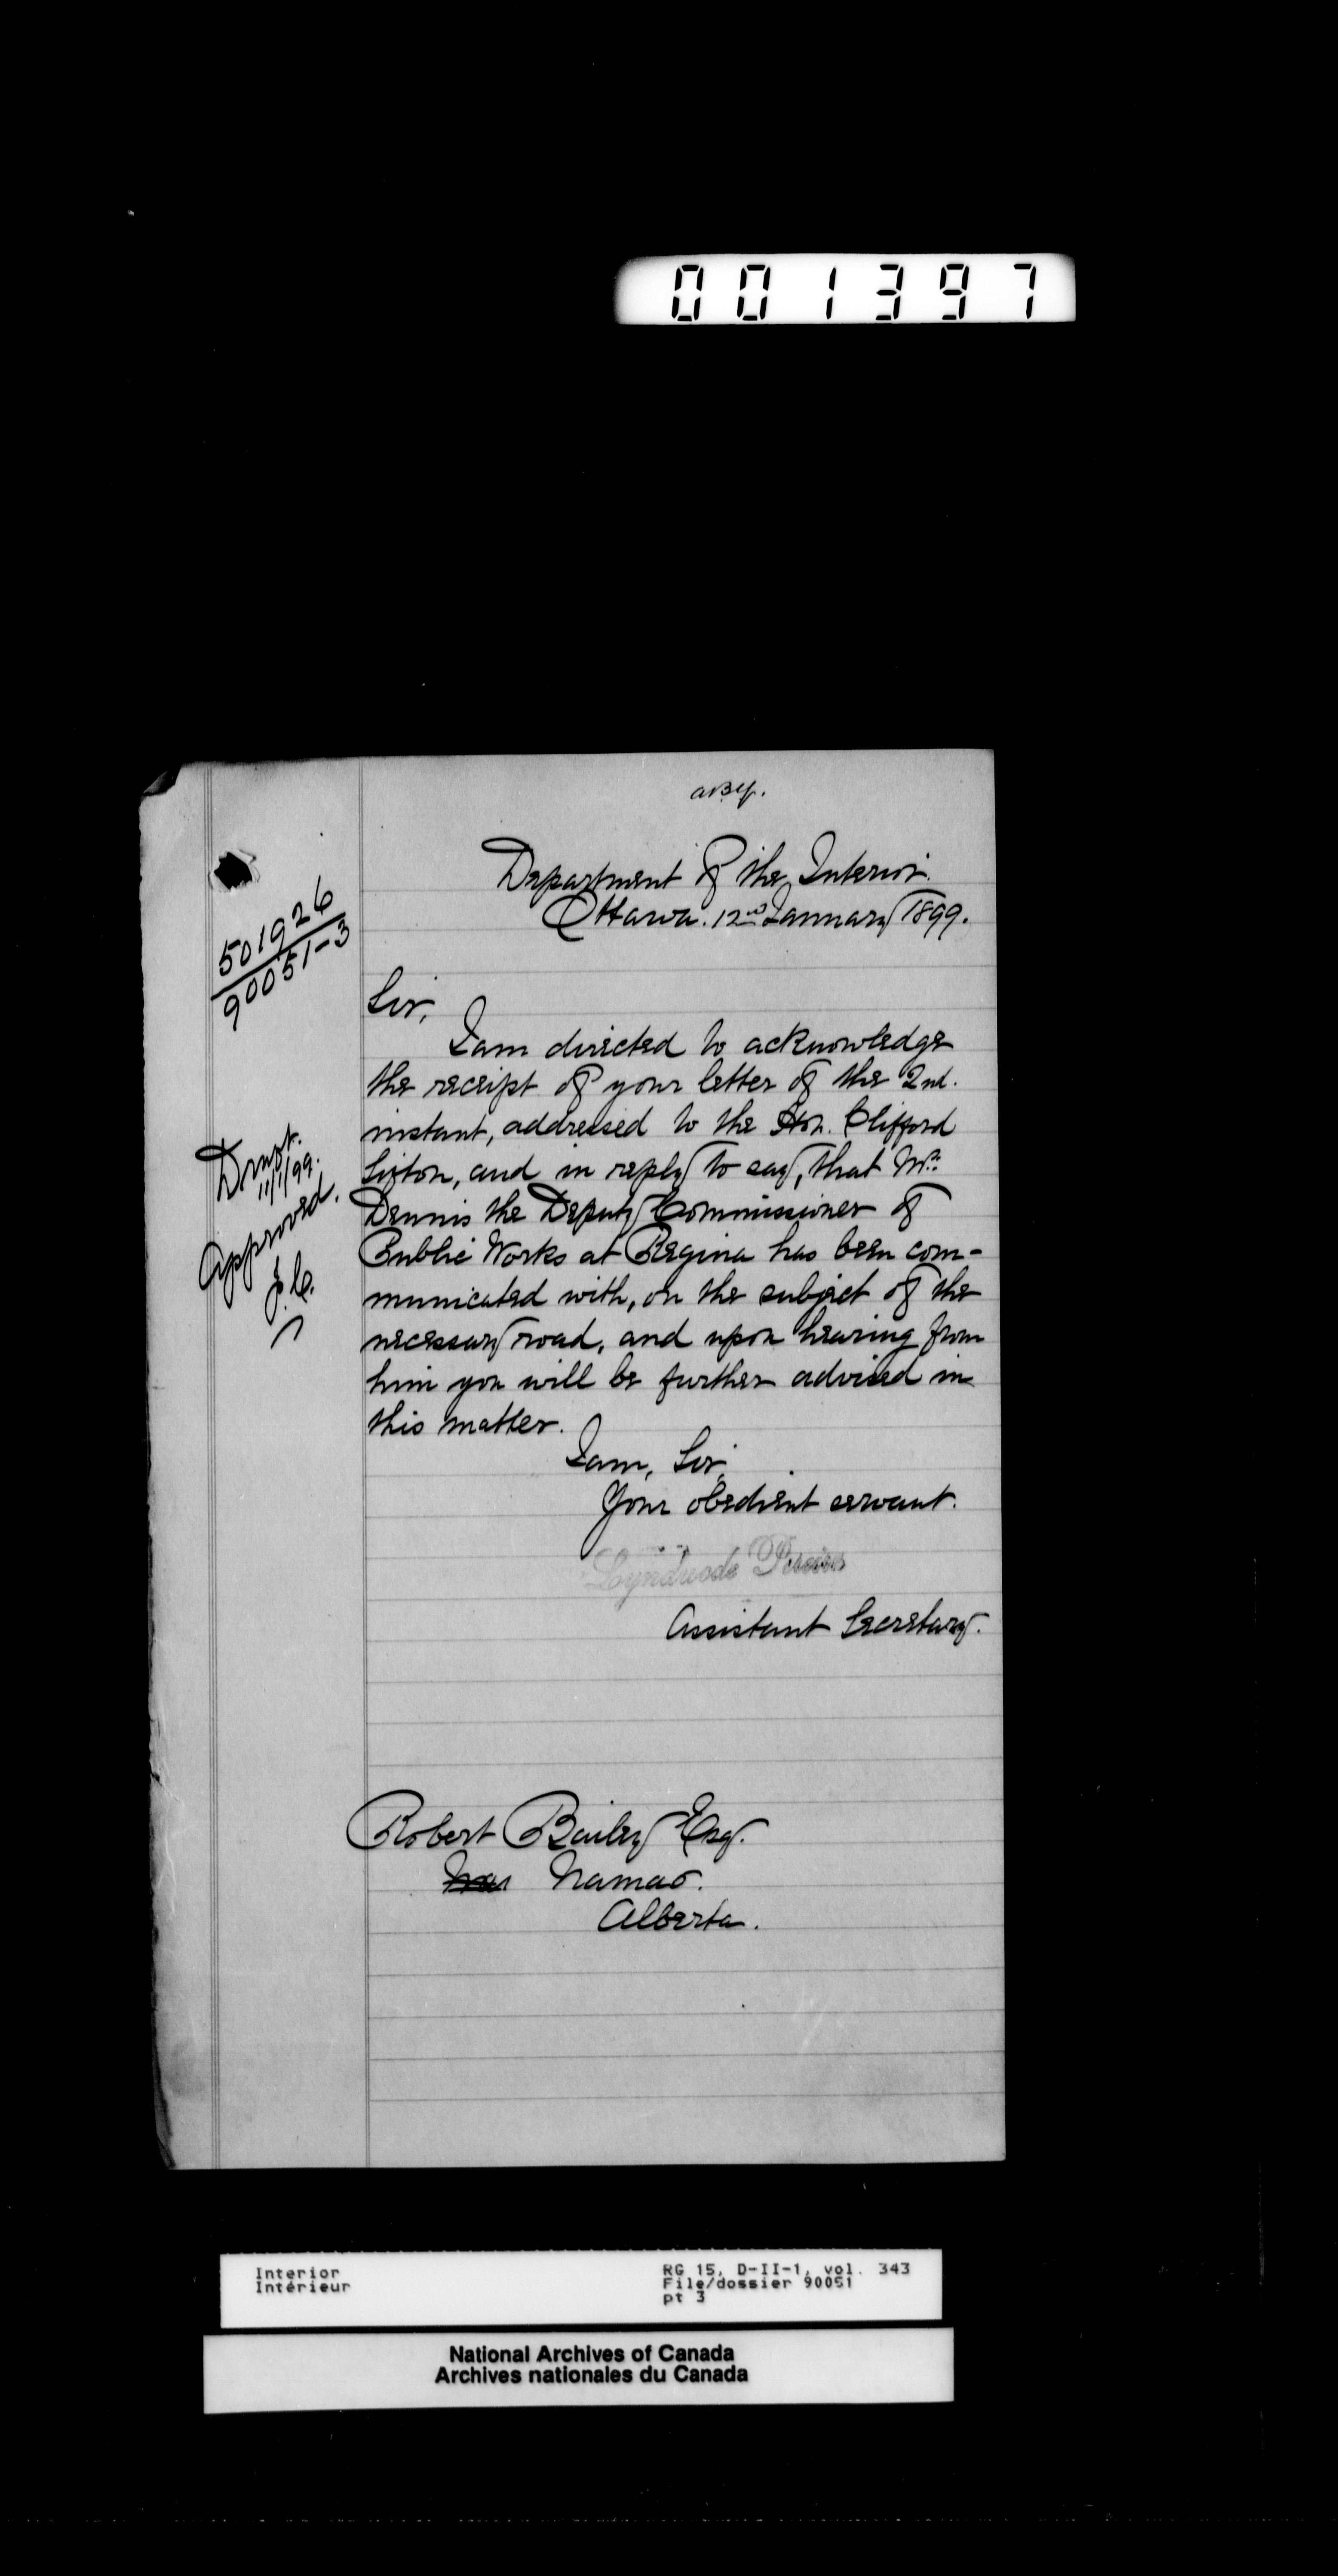 001397
Department of the Interior.
Ottawa. 12nd January 1899.
501926
90051-3
Sir,
I am directed to acknowledge
the receipt of your letter of the 2nd.
instant, addressed to the Hon. Clifford
Sifton, and in reply to say, that Mr.
Dennis the Deputy Commissioner of
Public Works at Regina has been com-
municated with, on the subject of the
necessary road, and upon hearing from
him you will be further advised in
this matter.
11/1/99.
Approved.
I am, Sir,
Your obedient servant.
Lyndwode Pereira
Assistant Secretary.
Robert Bailey Esq.
Namao.
Alberta.
Interior
Intérieur
RG 15, D-II-1, vol. 343
File/dossier 90051
pt 3
National Archives of Canada
Archives nationales du Canada